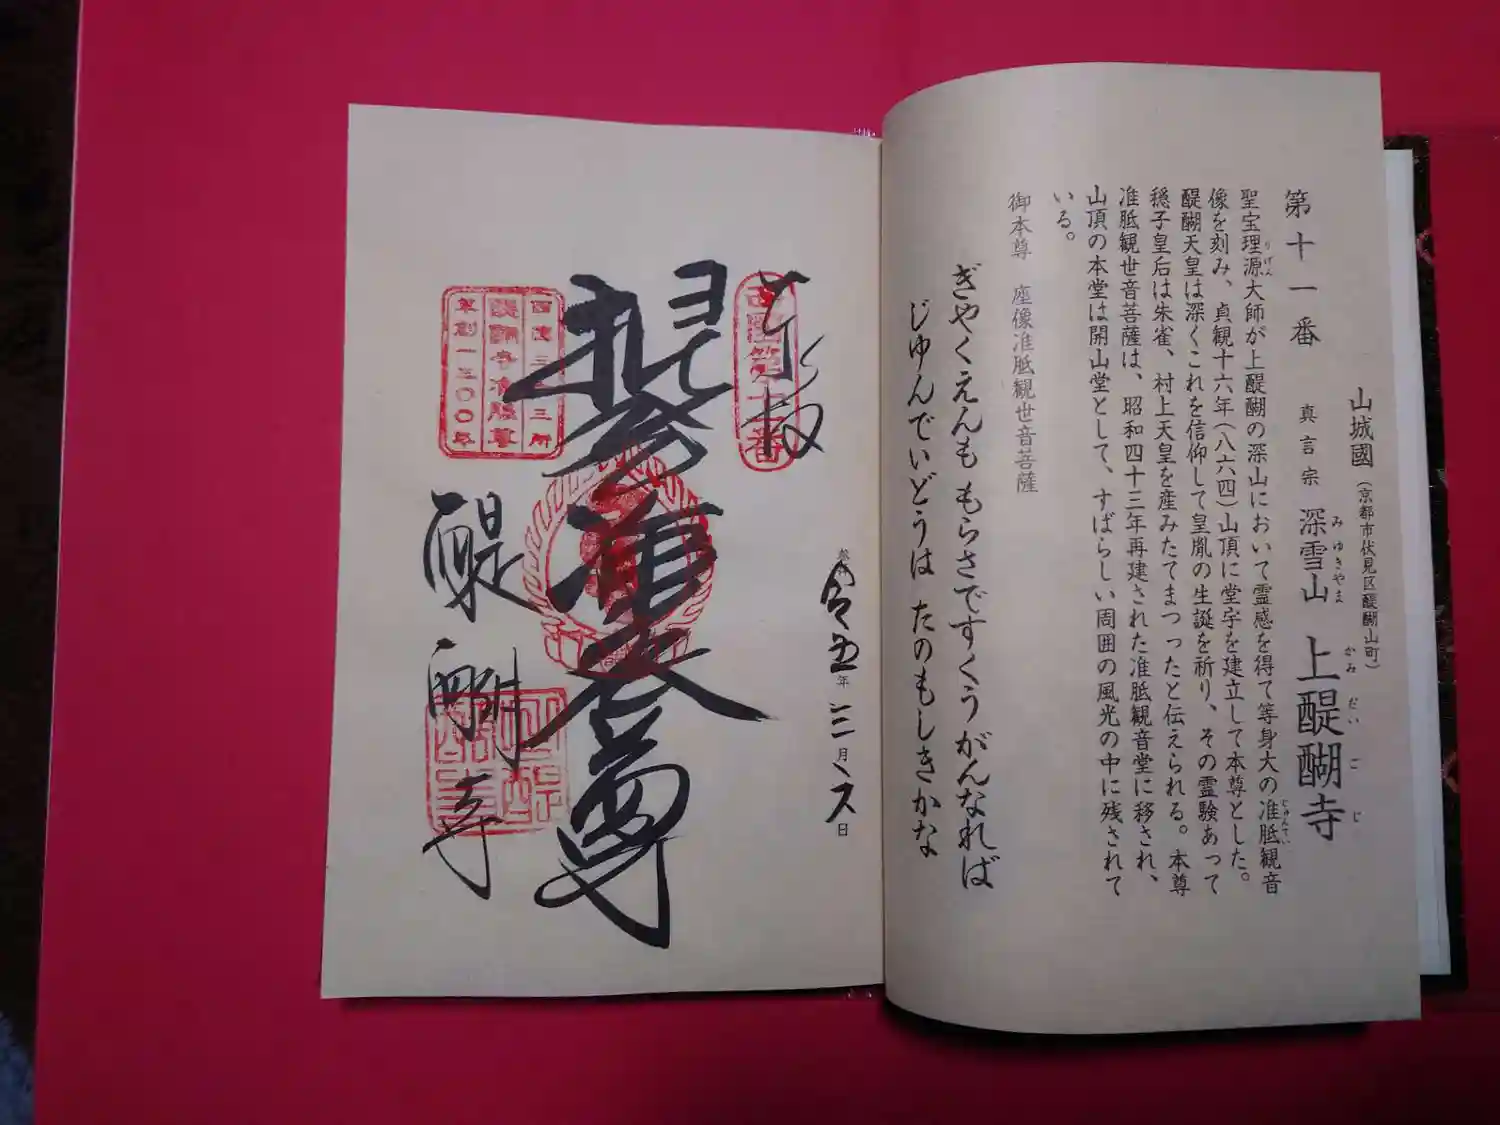 第十一番
山城國（京都市伏見区醍醐山町）
真言宗 深雪山 上醍醐寺
みゆきやま かみだいごじ
聖宝理源大師が上醍醐の深山において霊感を得て等身大の准胝観音
りげん じゅんてい
像を刻み、貞観十六年（八六四）山頂に堂宇を建立して本尊とした。
醍醐天皇は深くこれを信仰して皇胤の生誕を祈り、その霊験あって
穏子皇后は朱雀、村上天皇を産みたてまつったと伝えられる。本尊
准胝観世音菩薩は、昭和四十三年再建された准胝観音堂に移され、
山頂の本堂は開山堂として、すばらしい周囲の風光の中に残されて
いる。
御本尊 座像准胝観世音菩薩
ぎやくえんも もらさですくうがんなれば
じゆんでいどうは たのもしきかな
奉拝
令五年三月六日
西国第十一番
准胝尊
西国三十三所
草創一三〇〇年
醍醐寺